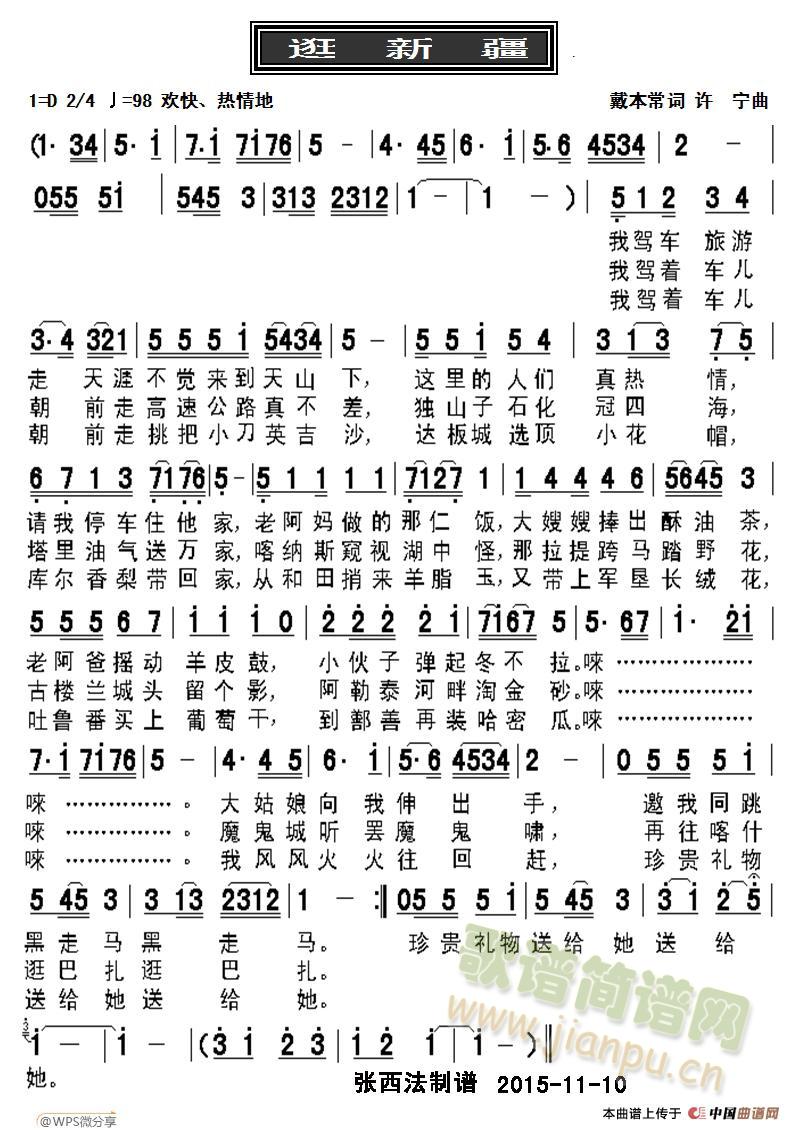 逛 新 疆
1=D 2/4 ♩=98 欢快、热情地 戴本常词 许 宁曲
(1· 34 | 5· i | 7·i 7i76 | 5 - | 4· 5 | 6· i | 5·6 4534 | 2 - |
055 5i | 545 3 | 313 2312 | 1 - | 1 - ) | 5 1 2 3 4 |
我驾车 旅游
我驾着 车儿
我驾着 车儿
3·4 321 | 5 5 5 i | 5434 | 5 - | 5 5 i 5 4 | 3 1 3 7 5 |
走 天涯不觉来到天山下, 这里的人们 真热 情,
朝 前走高速公路真不差, 独山子石化 冠四 海,
朝 前走挑把小刀英吉沙, 达板城选顶 小花 帽,
6 7 1 3 7176 | 5 - | 5 1 1 1 1 | 7127 1 | 1 4 4 4 4 | 5645 3 |
请我停车住他家,老阿妈做的那仁 饭,大嫂嫂捧出 酥油 茶,
塔里油气送万家,喀纳斯窥视湖中 怪,那拉提跨马踏野 花,
库尔香梨带回家,从和田捎来羊脂 玉,又带上军垦长绒 花,
5 5 5 6 7 | i i i 0 | 2 2 2 2i | 7i67 5 | 5· 67 | i· 2i |
老阿爸摇动 羊皮鼓, 小伙子弹起冬不 拉。唻 ……………
古楼兰城头 留个影, 阿勒泰河畔淘金 砂。唻 ……………
吐鲁番买上 葡萄干, 到鄯善再装哈密 瓜。唻 ……………
7·i 7i76 | 5 - | 4· 4 4 5 | 6· i | 5 6 4534 | 2 - | 0 5 5 5 i |
唻 ……………。 大姑娘向我伸出 手, 邀我同跳
唻 ……………。 魔鬼城听罢魔鬼 啸, 再往喀什
唻 ……………。 我风风火火往回 赶, 珍贵礼物
5 45 3 | 3 13 2312 | 1 - :‖ 05 5 5 i | 5 45 3 | 3 1 2 5 |
黑走马黑 走 马。 珍贵礼物送给她送 给
逛巴扎逛 巴 扎。
送给她送 给 她。
i - | i - | (3 i 2 3 | i i | i - ) ‖
她。
张西法制谱 2015-11-10
歌谱简谱网
www.jianpu.cn
@WPS微分享
本曲谱上传于 中国曲谱网